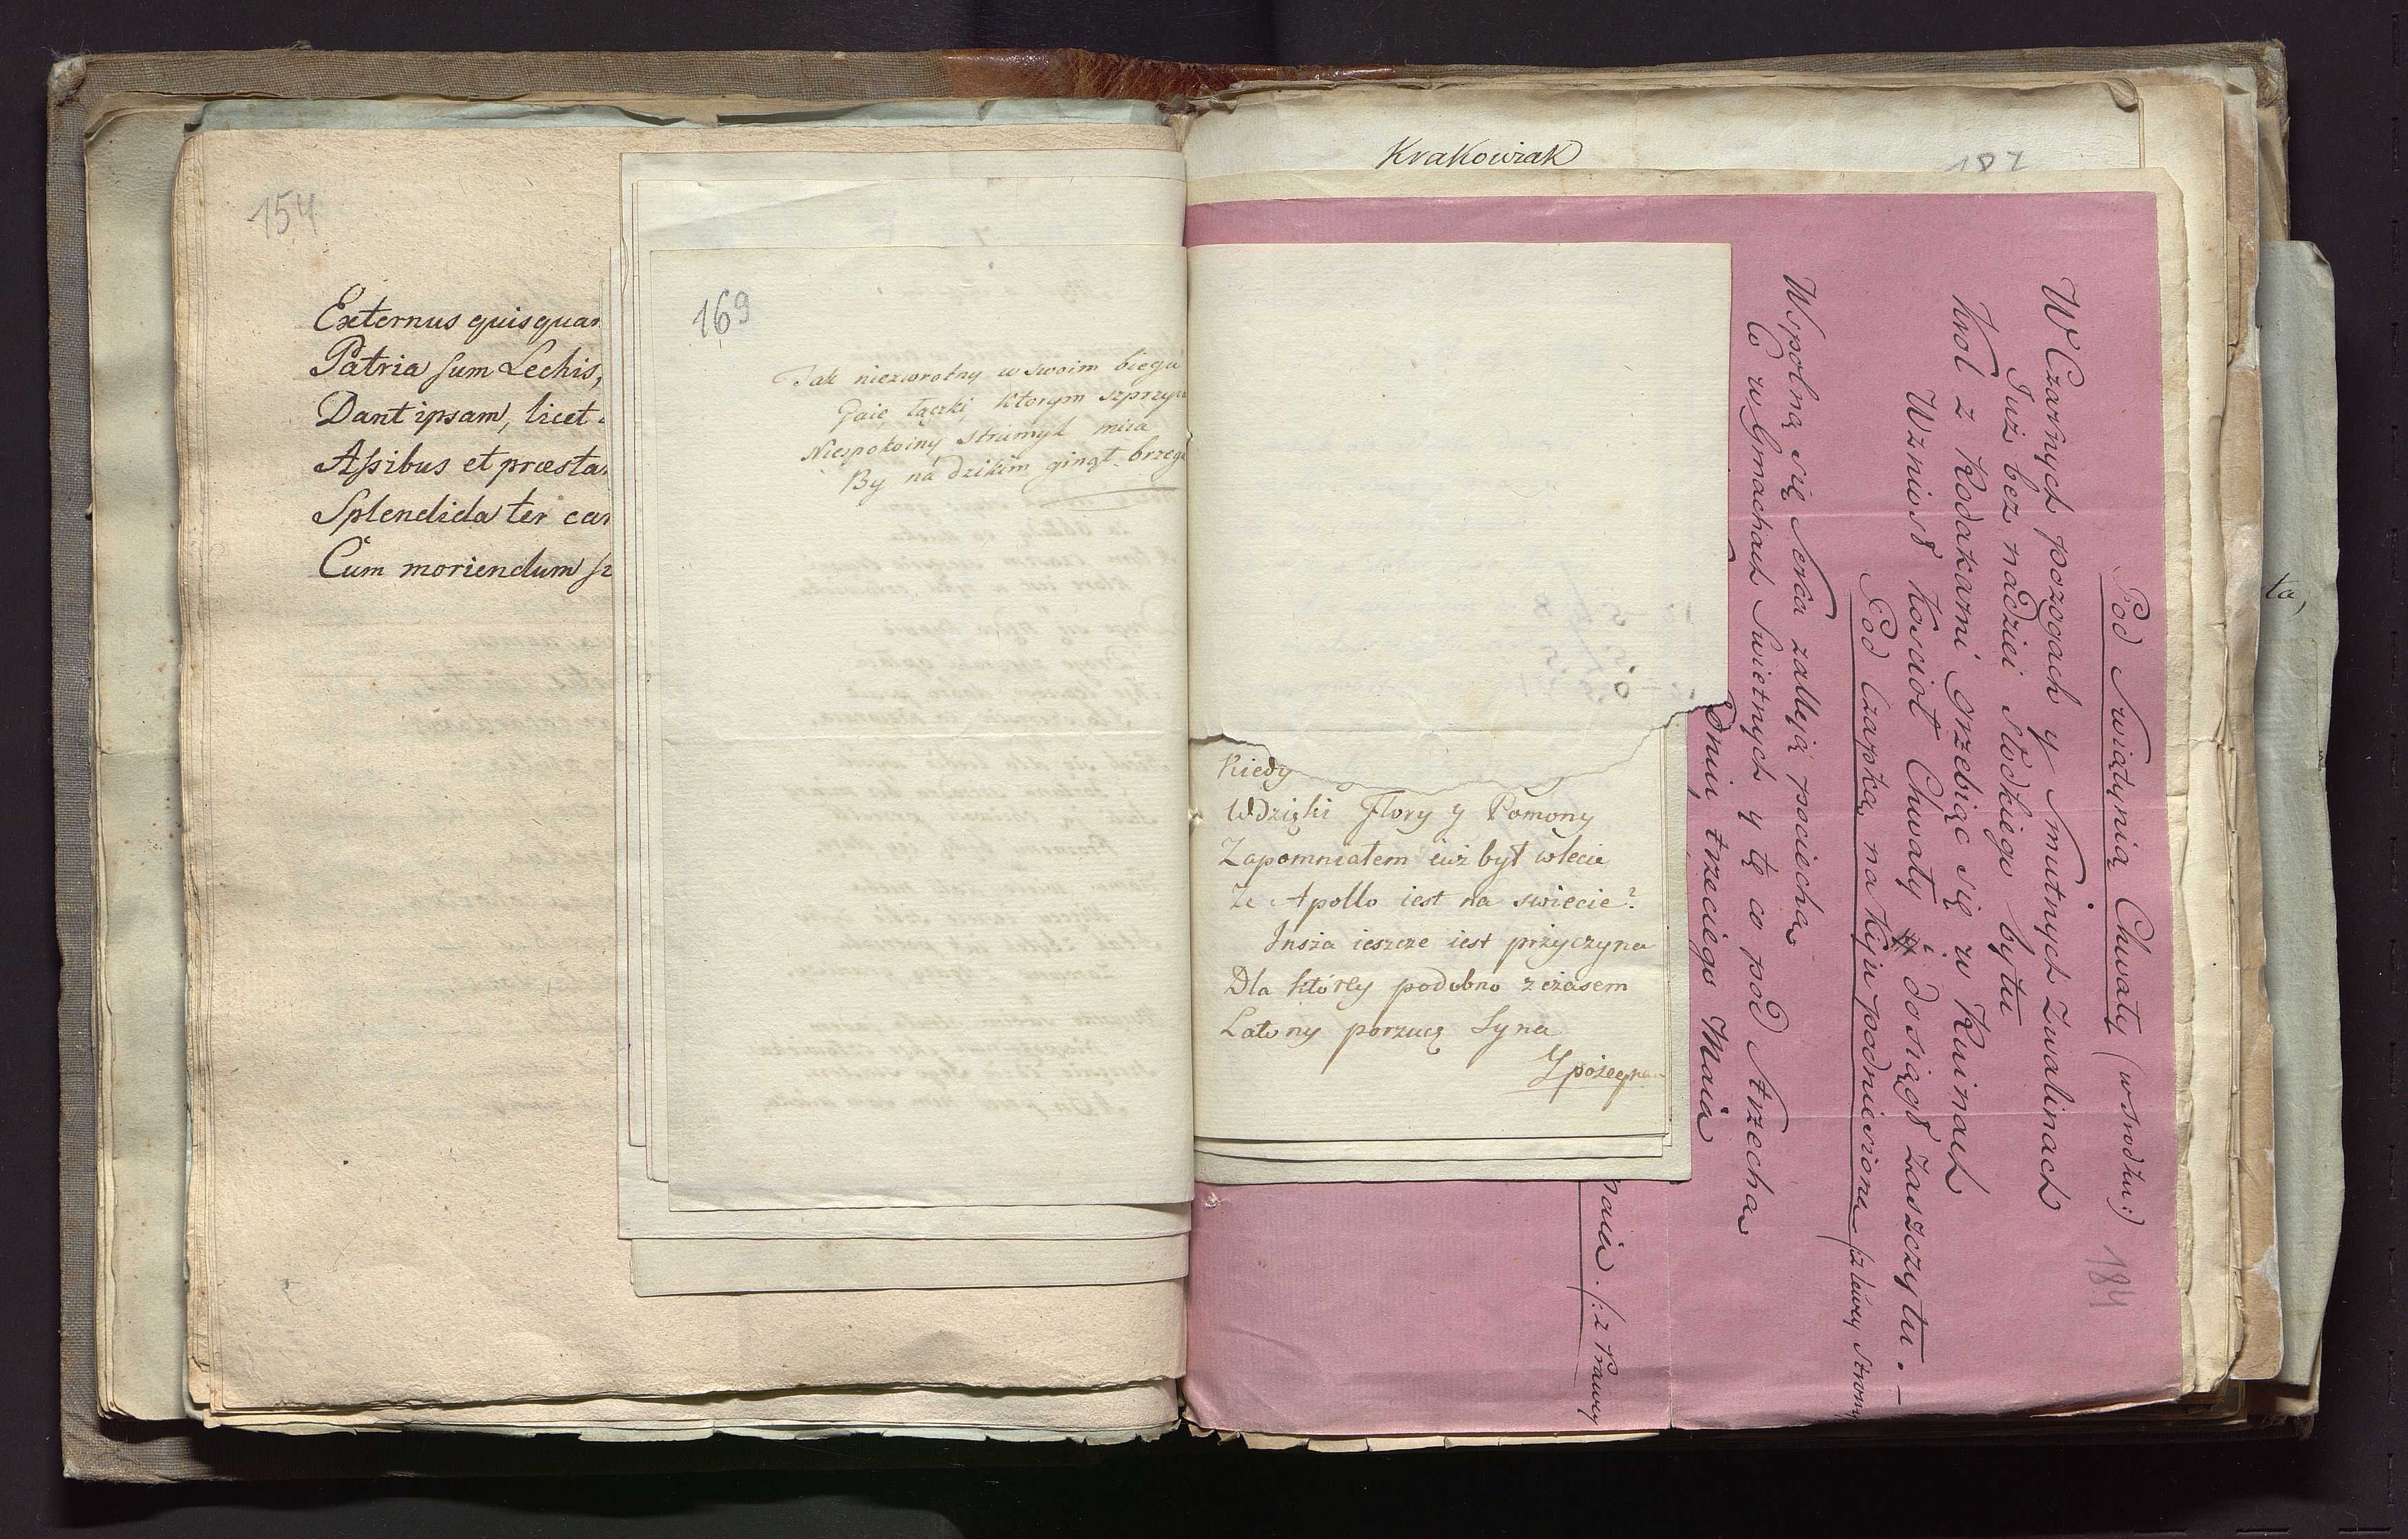 154
Externus quisquam
Patria sum Lechis,
Dant ipsam, licet
Assibus et præsta
Splendida ter car
Cum moriendum si
169
Jak niezwrotny w swoim biegu
Gaie, łączki, ktorym szprzy
Niespokoiny strumyk miia
By na dzikim ginął brzegu
Krakowiak
187
Kiedy
Wdzięki Flory y Pomony
Zapomniałem iuż był wlecie
Że Apollo iest na swiecie?
Insza ieszcze iest przyczyna
Dla którey podobno z czasem
Latony porzucę Syna
Y pożegna
Pod Swiątynią Chwały (w srodku:)
184
W Czarnych pozogach y smutnych Zwalinach
Już bez nadziei Słodkiego bytu
Krol z Rodakami grzebiąc się w Ruinach
Wzniosł Koscioł Chwały i dosiągł zaszczytu. –
Pod Czapką na kiju podniesioną (z lewey Strony
Wspolną się Serca zalleją pociechą
Co w Gmachach Swietnych y te co pod Strzechą
Dniu trzeciego Maia
Maia. (: z Prawey
ta,